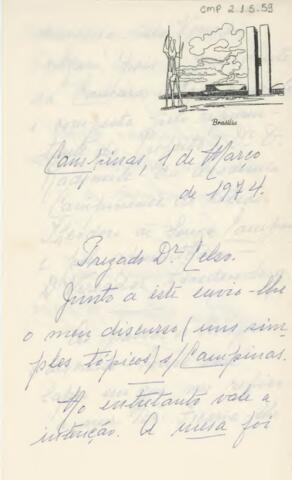 CMP 2.1.5.59
Brasília
Campinas, 1 de Março
de 1974.
Prezado Dr. Celso.
Junto a este envio-lhe
o meu discurso (uns sim-
ples tópicos) s/ Campinas.
No entretanto vale a
intenção. A mesa foi